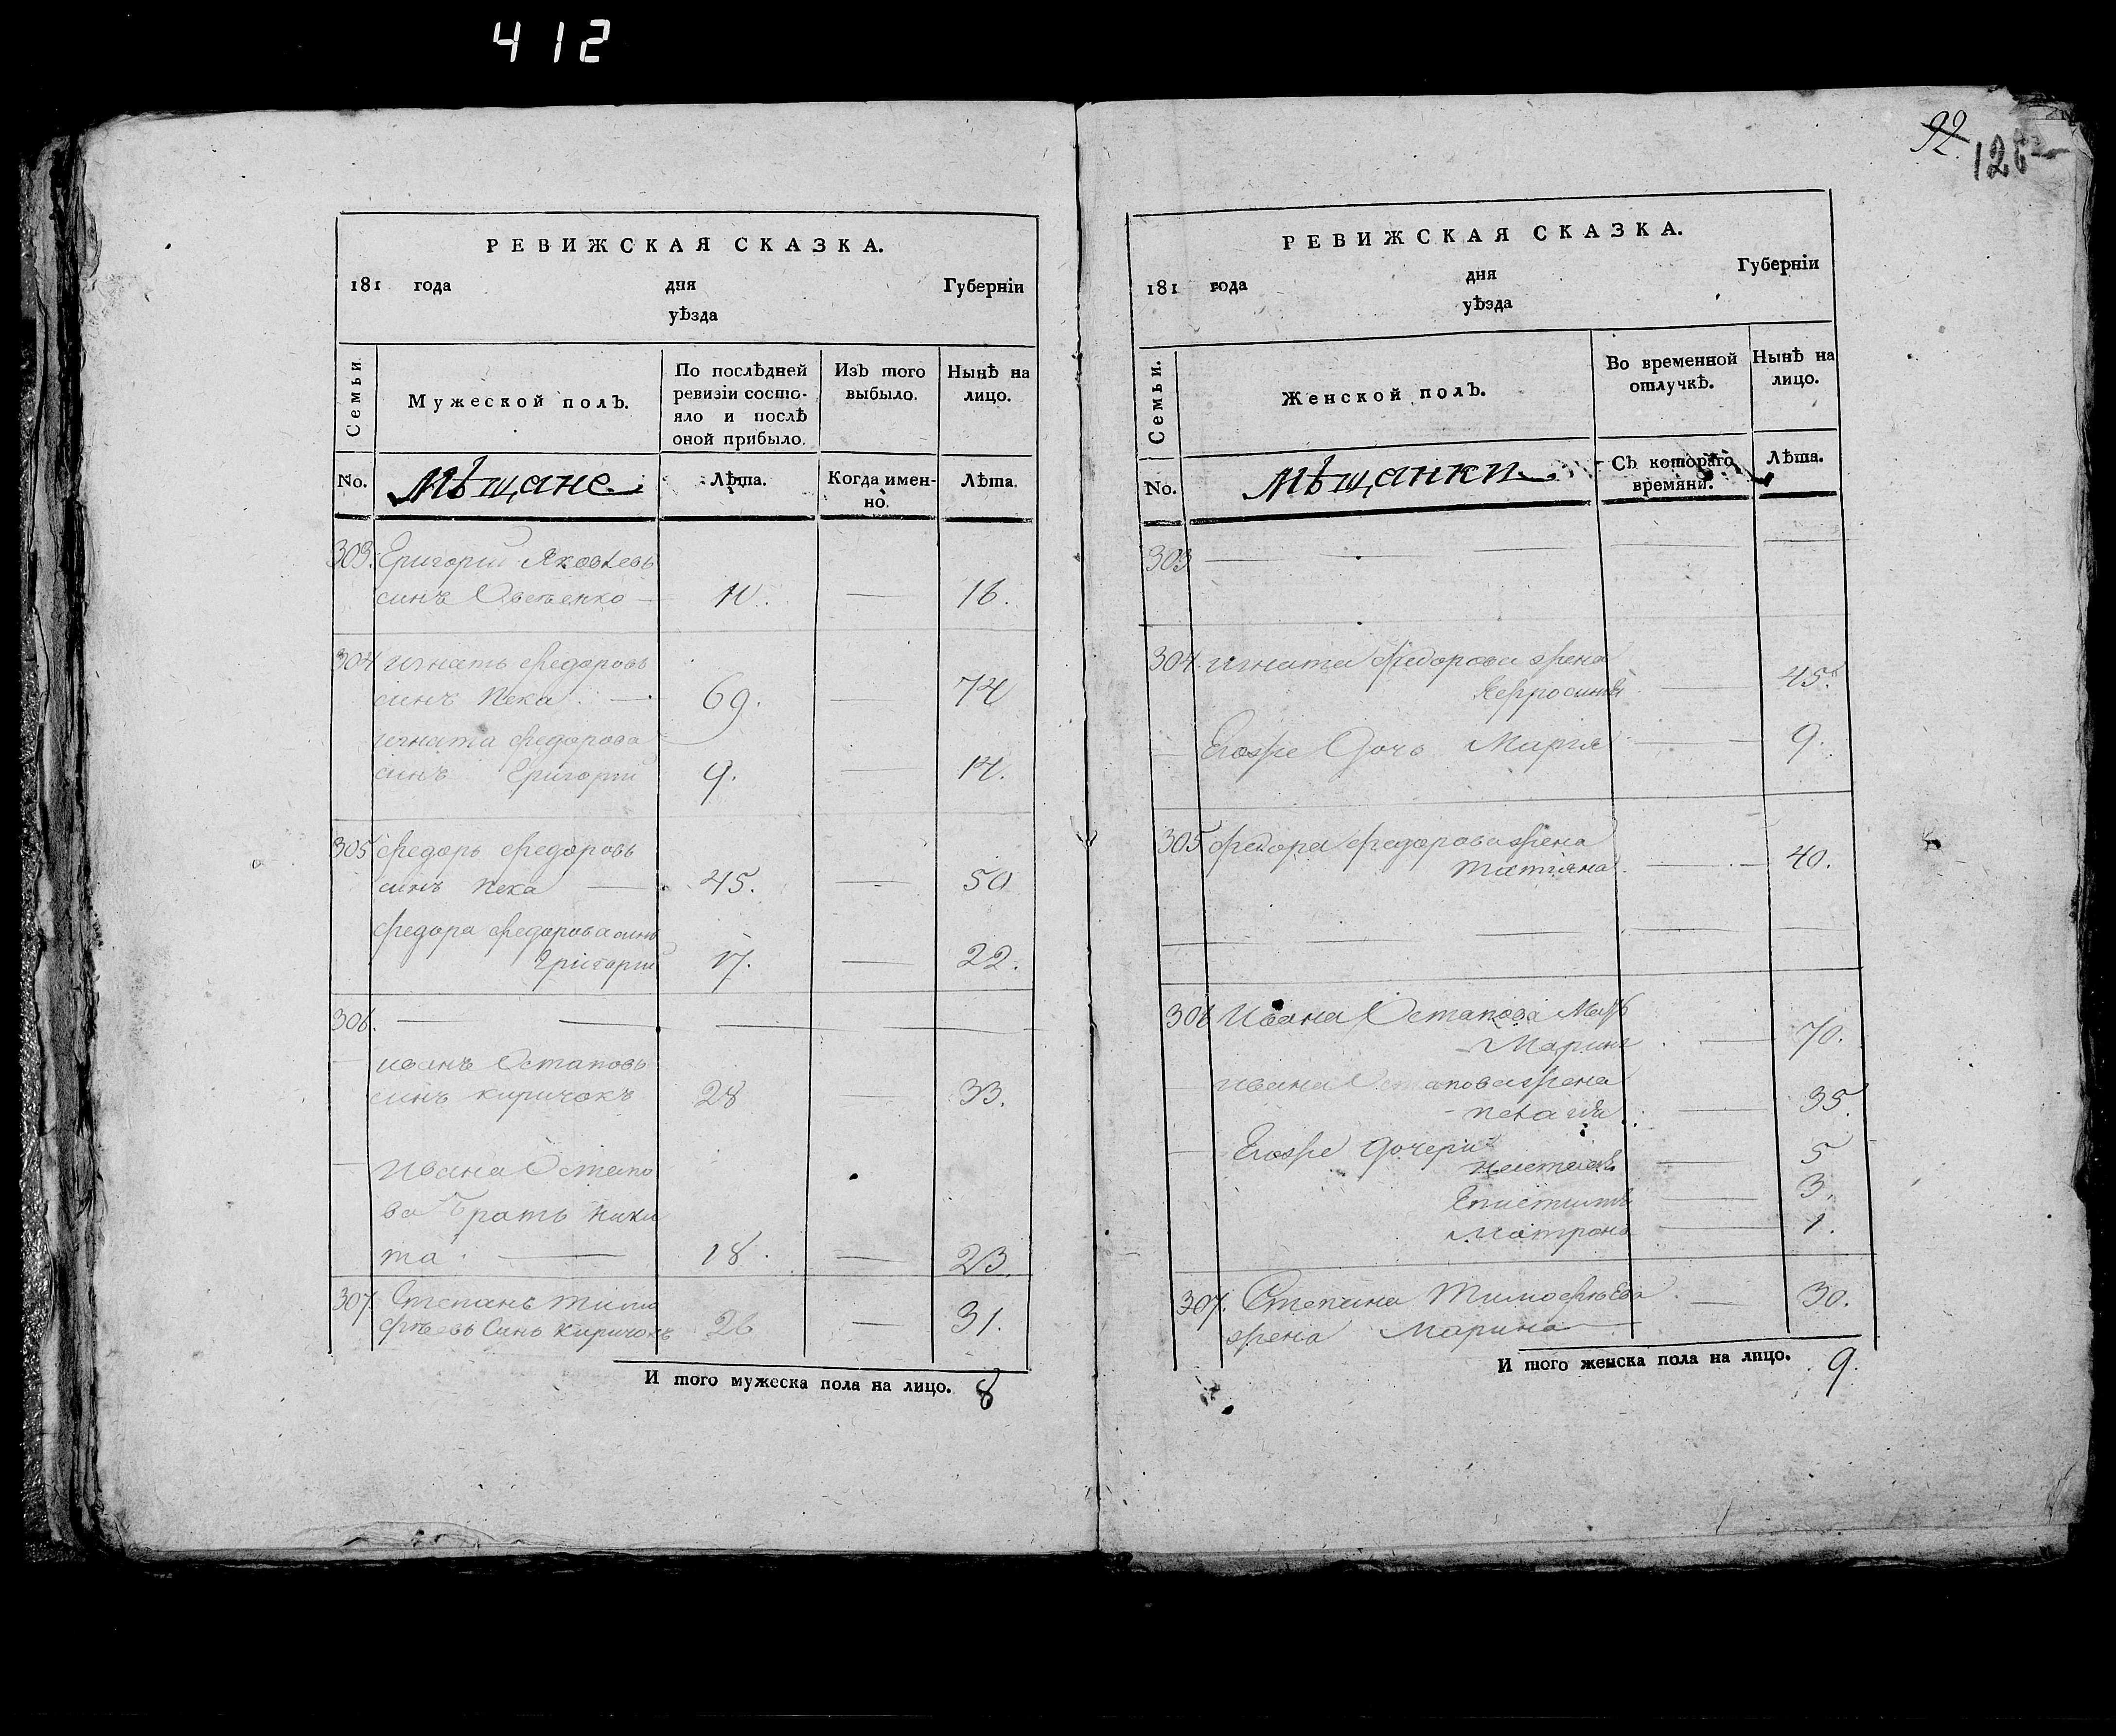 412
92.
126
РЕВИЖСКАЯ СКАЗКА.
181 года дня Губерніи
уѣзда
Семьи
Мужеской полъ.
По послѣдней ревизіи состо-
яло и послѣ оной прибыло.
Изъ того выбыло.
Нынѣ на лицо.
No. мѣщане
Лѣта.
Когда имен-
но.
Лѣта.
303. Григорій Яковлевъ
синъ 10. — 16.
304 игнатъ Федоровъ
синъ пека. — 69. — 74
игната Федорова
синъ Григорій 9. — 14.
305 Федоръ Федоровъ
синъ пека — 45. — 50
Федора Федорова синъ
Григорій 17. — 22.
306. — — — — —
— иванъ Остаповъ
синъ киричокъ 28 — 33.
— Ивана Остапо
ва Братъ Ники
та. — 18. — 23
307. Степанъ тимо
фѣевъ Синъ Киричокъ 26 — 31.
И того мужеска пола на лицо. 8
РЕВИЖСКАЯ СКАЗКА.
181 года дня Губерніи
уѣзда
Семьи.
Женской полъ.
Во временной отлучкѣ.
Нынѣ на лицо.
No. мѣщанки
Съ котораго времяни.
Лѣта.
303 — — — — —
304 игната Федорова жена
— 45.
— Егоже Дочь Марія — 9.
305 Федора Федорова жена
татіяна — 40.
— — — — —
306 Ивана Остапова Мать
Марина — 70.
— ивана Остапова жена
пелагія — 35.
— Егоже дочери
— 5
— 3.
Матрона — 1.
307. Степана Тимофѣева — 30.
жена Марина —
И того женска пола на лицо. 9.